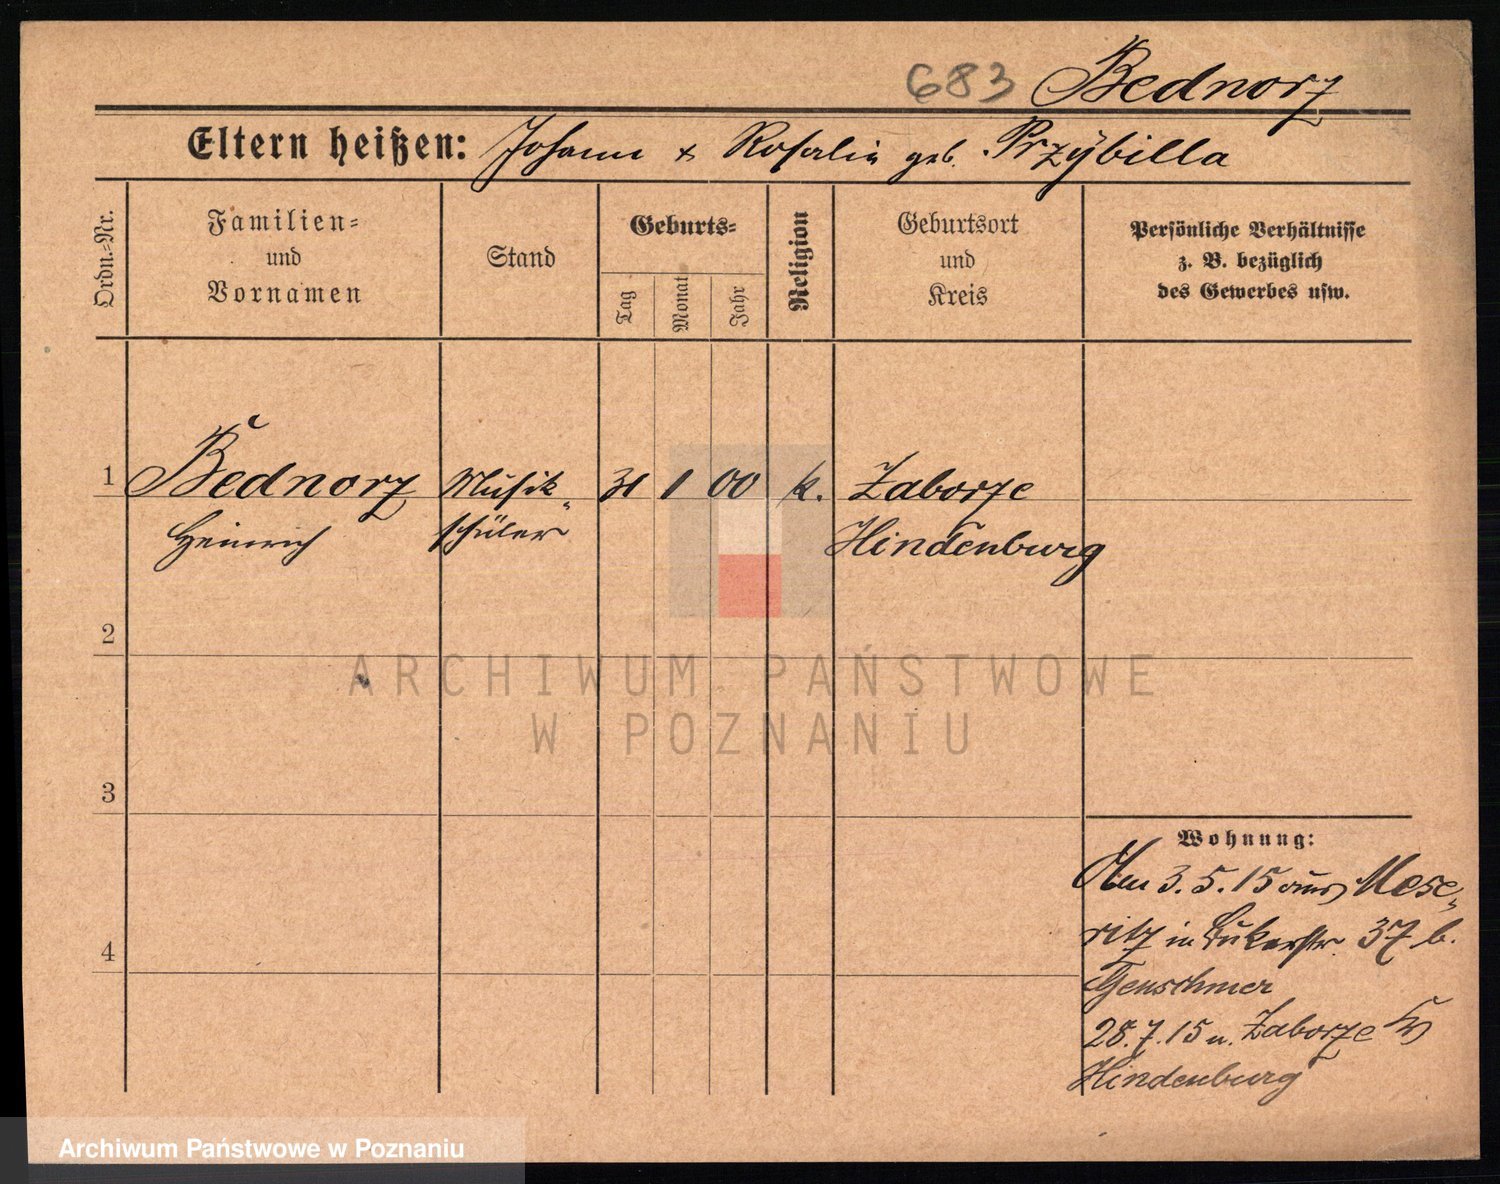 683 Bednorz
Eltern heißen: Johann + Rosalie geb. Przybilla
Ordn.-Nr.
Familien-
und
Vornamen
Stand
Geburts-
Tag
Monat
Jahr
Religion
Geburtsort
und
Kreis
Persönliche Verhältnisse
z. B. bezüglich
des Gewerbes usw.
1 Bednorz Musik- 31 1 00 k. Zaborze
Heinrich schüler Hindenburg
2
ARCHIWUM PAŃSTWOWE
W POZNANIU
3
Wohnung:
3. 5. 15 aus Mese-
ritz in 37 b.
4
Genschmer
28. 7. 15 n. Zaborze Kr
Hindenburg
Archiwum Państwowe w Poznaniu